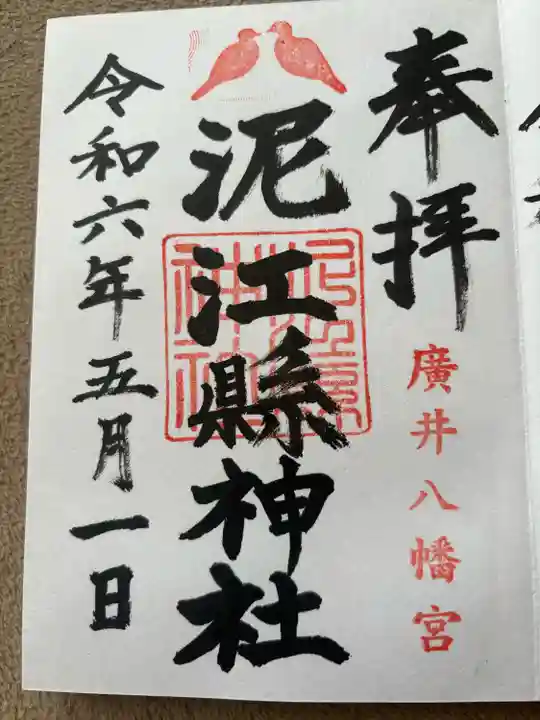 奉拝
廣井八幡宮
泥江縣神社
泥江縣神社
令和六年五月一日